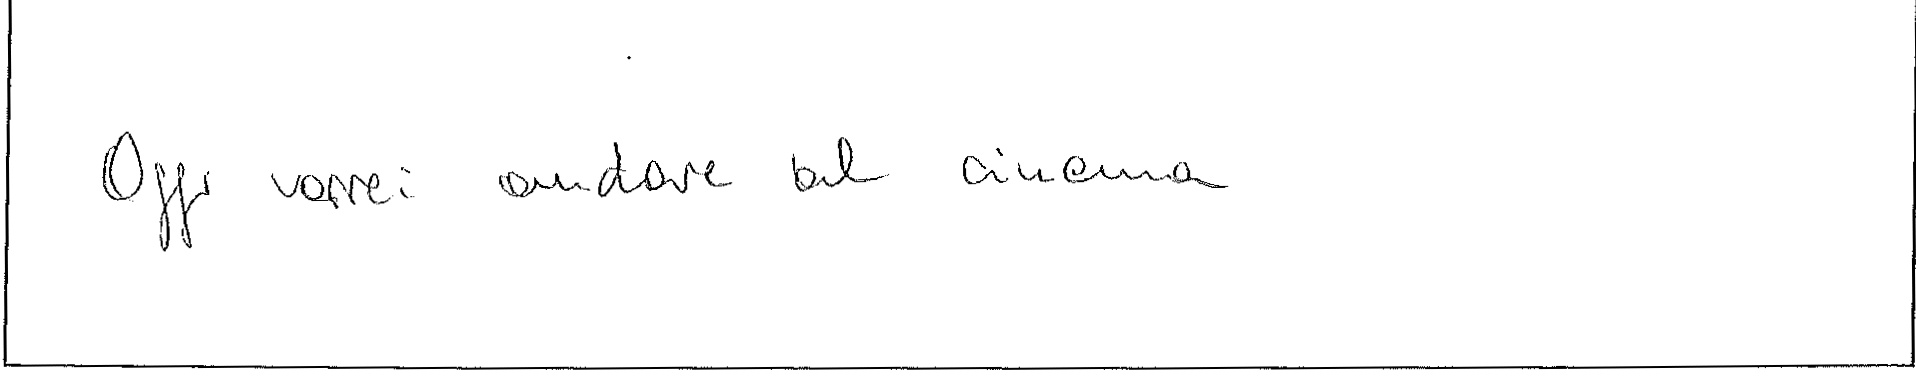 Oggi vorrei andare al cinema